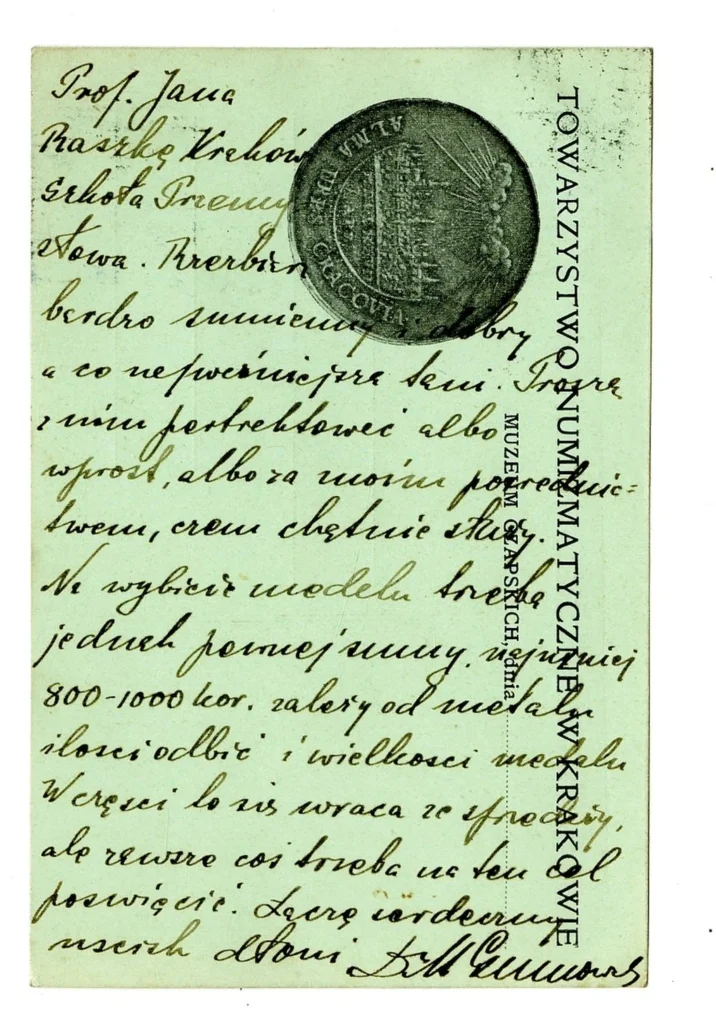 Prof. Jana
Raszkę Kraków
Szkoła Przemy
słowa. Rzeźbiarz
bardzo sumienny i dobry
a co najważniejsze tani. Proszę
z nim pertraktować albo
wprost, albo za moim pośrednic=
twem, czem chętnie służę.
Na wybicie medalu trzeba
jednak pewnej sumy, najmniej
800-1000 kor. zależy od metalu
ilości odbić i wielkości medalu
W części to się wraca ze sprzedaży,
ale zawsze coś trzeba na ten cel
poświęcić. Łączę serdeczny
uścisk dłoni Dr M Gumowski
TOWARZYSTWO NUMIZMATYCZNE W KRAKOWIE
MUZEUM CZAPSKICH, dnia
ALMA
CRACOVIA